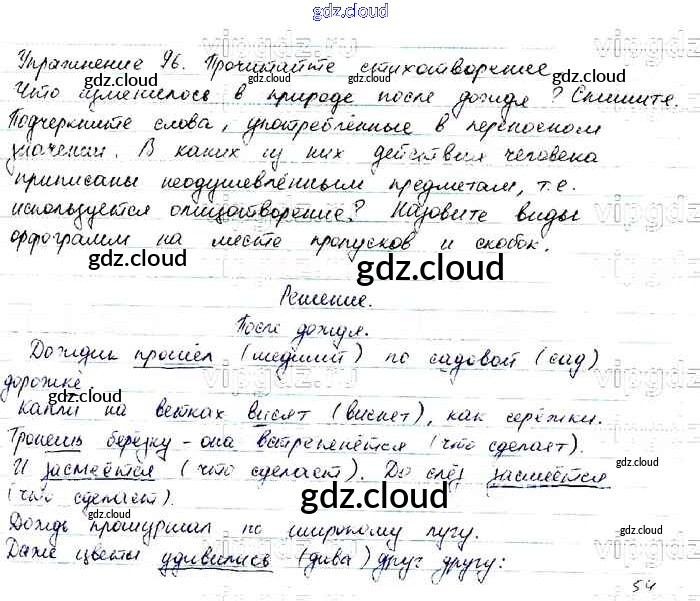 gdz.cloud
Упражнение 96. Прочитайте стихотворение
Что изменилось в природе после дождя? Спишите.
Подчеркните слова, употреблённые в переносном
значении. В каких из них действия человека
приписаны неодушевлённым предметам, т.е.
используется олицетворение? Назовите виды
орфограмм на месте пропусков и скобок.
Решение.
После дождя.
Дождик прошёл (шедший) по садовой (сад)
дорожке
Капли на ветках висят (виснет), как серёжки.
Тронешь берёзку - она встрепенётся (что сделает).
И засмеётся (что сделает). До слёз засмеётся
(что сделает).
Дождь прошуршал по широкому лугу.
Даже цветы удивились (дива) друг другу:
54
vipgdz.ru
gdz.cloud